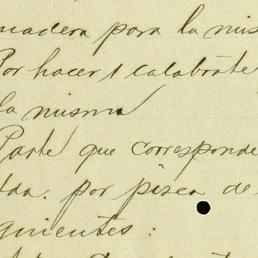 madera para la mis
Por hacer 1 calabrote
la misma
Parte que corresponde
tda. por pisca de
guientes: